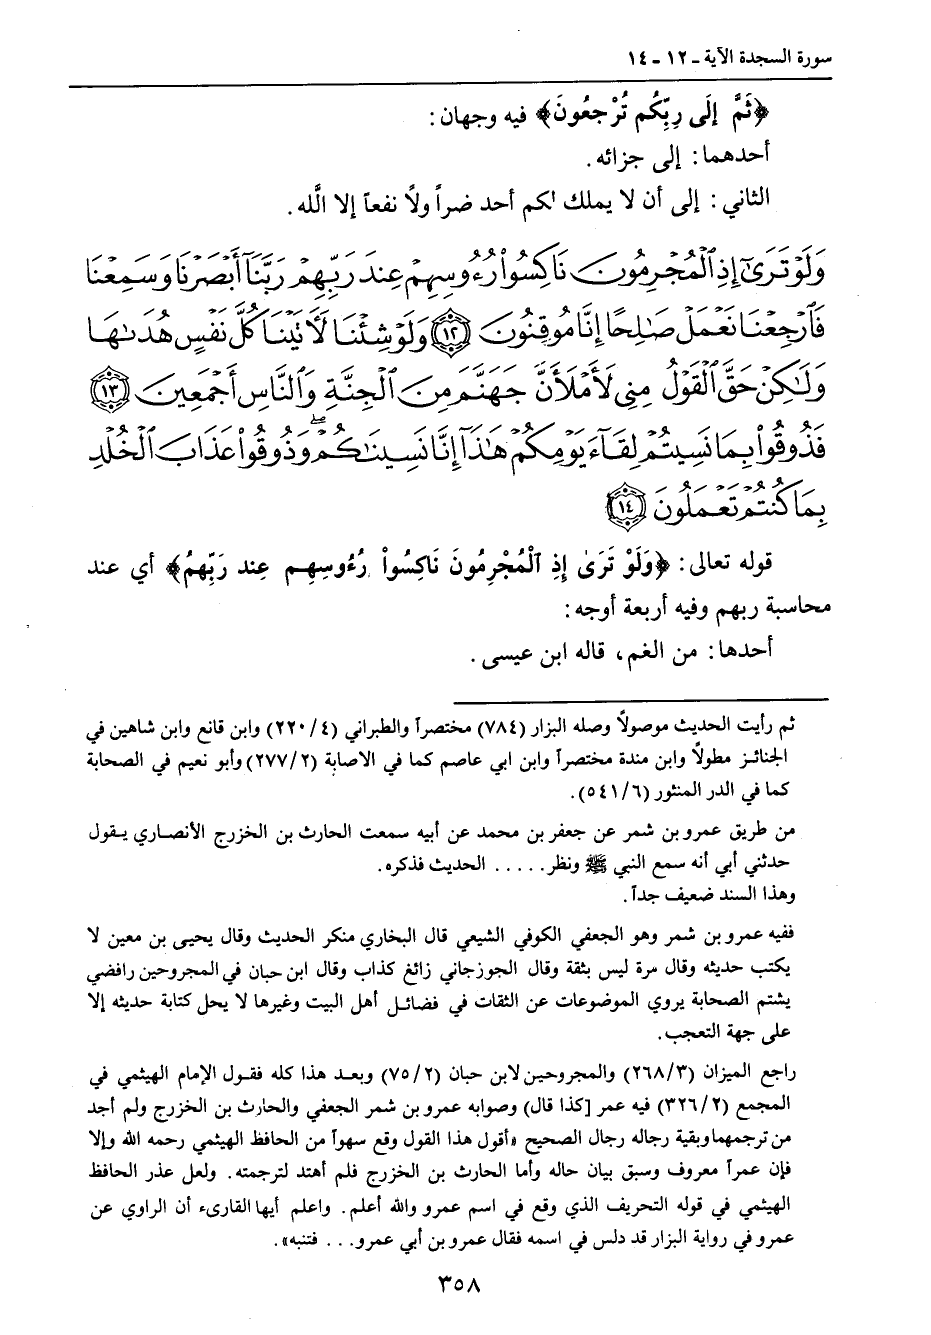 سورة السجدة الآية ـ ١٢ ـ ١٤
﴿ثُمَّ إِلَى رَبِّكُم تُرْجعُونَ﴾ فيه وجهان:
أحدهما: إلى جزائه.
الثاني: إلى أن لا يملك لكم أحد ضراً ولا نفعاً إلا الله.
وَلَوْ تَرَىٰٓ إِذِ ٱلْمُجْرِمُونَ نَاكِسُوا۟ رُءُوسِهِمْ عِندَ رَبِّهِمْ رَبَّنَآ أَبْصَرْنَا وَسَمِعْنَا
فَٱرْجِعْنَا نَعْمَلْ صَـٰلِحًا إِنَّا مُوقِنُونَ ١٢ وَلَوْ شِئْنَا لَـَٔاتَيْنَا كُلَّ نَفْسٍ هُدَىٰهَا
وَلَـٰكِنْ حَقَّ ٱلْقَوْلُ مِنِّى لَأَمْلَأَنَّ جَهَنَّمَ مِنَ ٱلْجِنَّةِ وَٱلنَّاسِ أَجْمَعِينَ ١٣
فَذُوقُوا۟ بِمَا نَسِيتُمْ لِقَآءَ يَوْمِكُمْ هَـٰذَآ إِنَّا نَسِينَـٰكُمْ ۖ وَذُوقُوا۟ عَذَابَ ٱلْخُلْدِ
بِمَا كُنتُمْ تَعْمَلُونَ ١٤
قوله تعالى: ﴿وَلَوْ تَرَىٰ إِذِ ٱلْمُجْرِمُونَ نَاكِسُواْ رُءُوسِهِم عِند رَبِّهِمُ﴾ أي عند
محاسبة ربهم وفيه أربعة أوجه:
أحدها: من الغم، قاله ابن عيسى.
ثم رأيت الحديث موصولاً وصله البزار (٧٨٤) مختصراً والطبراني (٢٢٠/٤) وابن قانع وابن شاهين في
الجنائز مطولاً وابن مندة مختصراً وابن ابي عاصم كما في الاصابة (٢٧٧/٢) وأبو نعيم في الصحابة
كما في الدر المنثور (٥٤١/٦).
من طريق عمرو بن شمر عن جعفر بن محمد عن أبيه سمعت الحارث بن الخزرج الأنصاري يقول
حدثني أبي أنه سمع النبي ﷺ ونظر..... الحديث فذكره.
وهذا السند ضعيف جداً.
ففيه عمرو بن شمر وهو الجعفي الكوفي الشيعي قال البخاري منكر الحديث وقال يحيى بن معين لا
يكتب حديثه وقال مرة ليس بثقة وقال الجوزجاني زائغ كذاب وقال ابن حبان في المجروحين رافضي
يشتم الصحابة يروي الموضوعات عن الثقات في فضائل أهل البيت وغيرها لا يحل كتابة حديثه إلا
على جهة التعجب.
راجع الميزان (٢٦٨/٣) والمجروحين لابن حبان (٧٥/٢) وبعد هذا كله فقول الإمام الهيثمي في
المجمع (٣٢٦/٢) فيه عمر [كذا قال) وصوابه عمرو بن شمر الجعفي والحارث بن الخزرج ولم أجد
من ترجمهما وبقية رجاله رجال الصحيح «أقول هذا القول وقع سهواً من الحافظ الهيثمي رحمه الله وإلا
فإن عمراً معروف وسبق بيان حاله وأما الحارث بن الخزرج فلم أهتد لترجمته. ولعل عذر الحافظ
الهيثمي في قوله التحريف الذي وقع في اسم عمرو والله أعلم. واعلم أيها القارىء أن الراوي عن
عمرو في رواية البزار قد دلس في اسمه فقال عمرو بن أبي عمرو... فتنبه».
٣٥٨